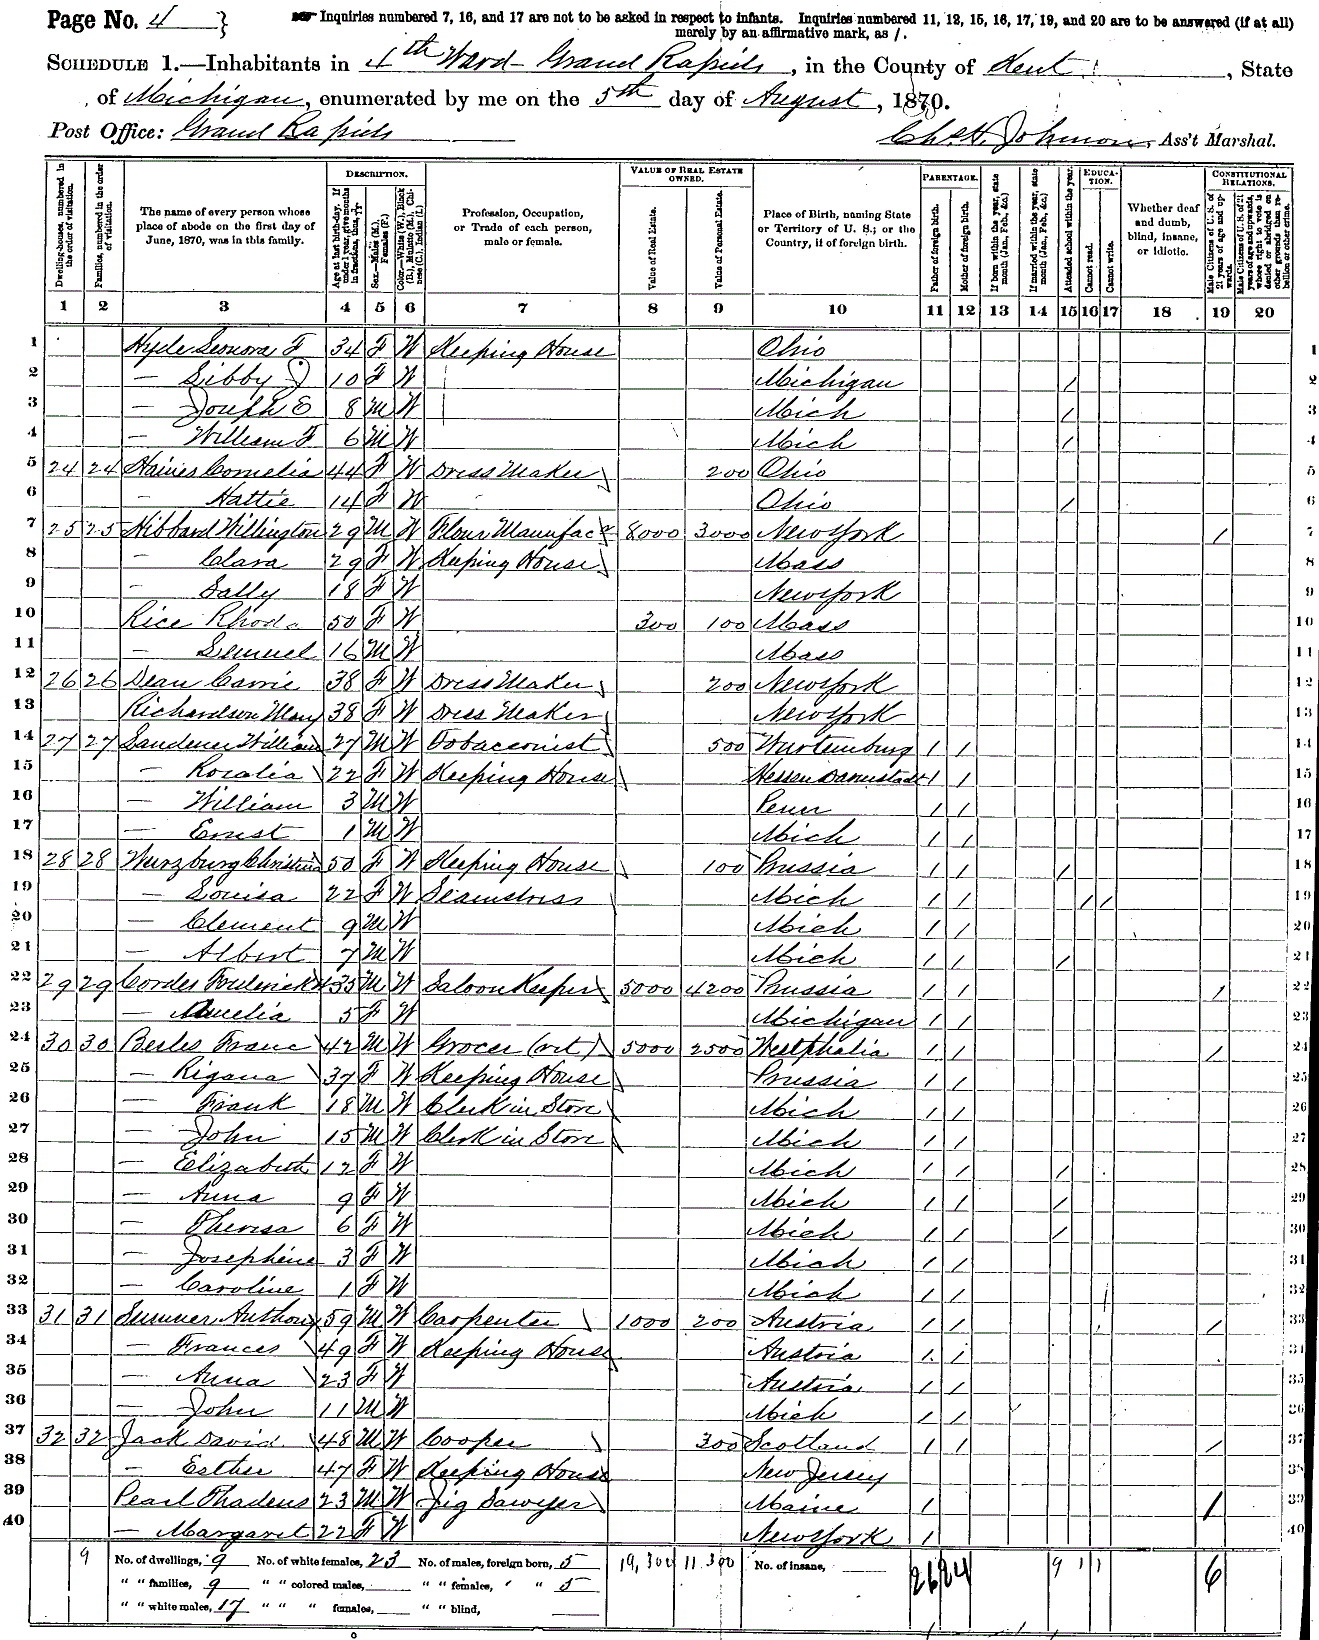 Page No. 4 } Inquiries numbered 7, 16, and 17 are not to be asked in respect to infants. Inquiries numbered 11, 12, 15, 16, 17, 19, and 20 are to be answered (if at all)
merely by an affirmative mark, as /.
SCHEDULE 1.—Inhabitants in 4th Ward Grand Rapids, in the County of Kent, State
of Michigan, enumerated by me on the 5th day of August, 1870.
Post Office: Grand Rapids Chs. H. Johnson, Ass't Marshal.
Dwelling-houses, numbered in the order of visitation.
Families, numbered in the order of visitation.
The name of every person whose place of abode on the first day of June, 1870, was in this family.
DESCRIPTION.
Age at last birth-day. If under 1 year, give months in fractions, thus,
Sex.—Males (M.), Females (F.)
Color.—White (W.), Black (B.), Mulatto (M.), Chinese (C.), Indian (I.)
Profession, Occupation, or Trade of each person, male or female.
VALUE OF REAL ESTATE OWNED.
Value of Real Estate.
Value of Personal Estate.
Place of Birth, naming State or Territory of U. S.; or the Country, if of foreign birth.
PARENTAGE.
Father of foreign birth.
Mother of foreign birth.
If born within the year, state month (Jan., Feb., &c.)
If married within the year, state month (Jan., Feb., &c.)
Attended school within the year.
EDUCATION.
Cannot read.
Cannot write.
Whether deaf and dumb, blind, insane, or idiotic.
CONSTITUTIONAL RELATIONS.
Male Citizens of U. S. of 21 years of age and upwards.
Male Citizens of U. S. of 21 years of age and upwards, whose right to vote is denied or abridged on other grounds than rebellion or other crime.
1 2 3 4 5 6 7 8 9 10 11 12 13 14 15 16 17 18 19 20
1 Hyde Leonora F 34 F W Keeping House Ohio 1
2 — Libby J 10 F W Michigan / 2
3 — Joseph E 8 M W Mich / 3
4 — William F 6 M W Mich / 4
5 24 24 Haines Cornelia 44 F W Dress Maker 200 Ohio 5
6 — Hattie 14 F W Ohio / 6
7 25 25 Hibbard Willington 29 M W Flour Manufac 8000 3000 New York / 7
8 — Clara 29 F W Keeping House Mass 8
9 — Sally 18 F W New York 9
10 Rice Rhoda 50 F W 300 100 Mass 10
11 — Lemuel 16 M W Mass 11
12 26 26 Dean Carrie 38 F W Dress Maker 200 New York 12
13 Richardson Mary 38 F W Dress Maker New York 13
14 27 27 Landener William 27 M W Tobacconist 500 Wurtemburg / / 14
15 — Rosalia 22 F W Keeping House Hessen Darmstadt / / 15
16 — William 3 M W Penn / / 16
17 — Ernst 1 M W Mich / / 17
18 28 28 Wurzburg Christina 50 F W Keeping House 100 Prussia / / / 18
19 — Louisa 22 F W Seamstress Mich / / / / 19
20 — Clement 9 M W Mich / / 20
21 — Albert 7 M W Mich / / / 21
22 29 29 Cordes Frederick 35 M W Saloon Keeper 5000 4200 Prussia / / / 22
23 — Amelia 5 F W Michigan / / 23
24 30 30 Berles Franc 42 M W Grocer (ret) 5000 2500 Westphalia / / / 24
25 — Rigana 37 F W Keeping House Prussia / / 25
26 — Frank 18 M W Clerk in Store Mich / / 26
27 — John 15 M W Clerk in Store Mich / / 27
28 — Elizabeth 12 F W Mich / / / 28
29 — Anna 9 F W Mich / / / 29
30 — Theresa 6 F W Mich / / / 30
31 — Josephine 3 F W Mich / / 31
32 — Caroline 1 F W Mich / / 32
33 31 31 Summer Anthony 59 M W Carpenter 1000 200 Austria / / / 33
34 — Frances 49 F W Keeping House Austria / / 34
35 — Anna 23 F W Austria / / 35
36 — John 11 M W Mich / / 36
37 32 32 Jack David 48 M W Cooper 300 Scotland / / / 37
38 — Esther 47 F W Keeping House New Jersey 38
39 Pearl Thadeus 23 M W Jig Sawyer Maine / / 39
40 — Margaret 22 F W New York / 40
9 No. of dwellings, 9 No. of white females, 23 No. of males, foreign born, 5 19,300 11.300 No. of insane, 26 24 9 1 1 6
" " families, 9 " " colored males, " " females, " " 5
" " white males, 17 " " " females, " " blind,